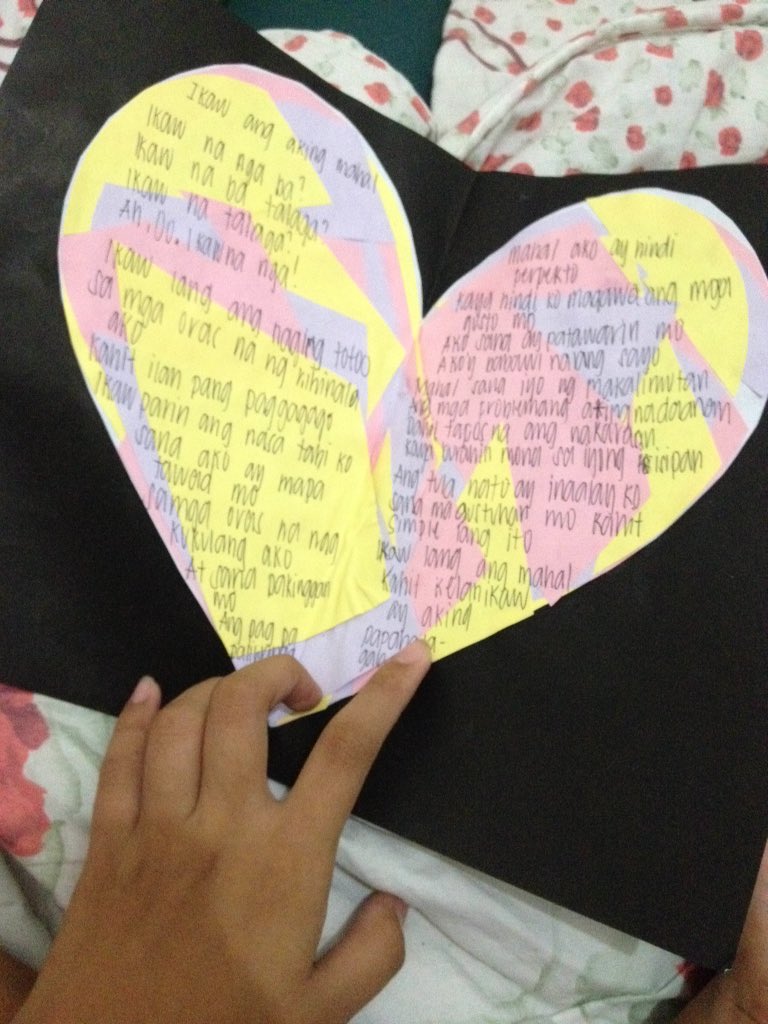 Ikaw ang aking mahal
Ikaw na nga ba?
Ikaw na ba talaga?
Ikaw na talaga?
Ah, Oo. Ikaw na nga!
Ikaw lang ang naging totoo
sa mga oras na ng hihinala
ako
Kahit ilan pang paggagago
Ikaw parin ang nasa tabi ko
sana ako ay mapa
tawad mo
sa mga oras na nag
kukulang ako
At sana pakinggan
mo
Ang pag pa
mahal ako ay hindi
perpekto
kaya hindi ko magawa ang mga
gusto mo
Ako sana ay patawarin mo
Ako'y babawi na lang sayo
Mahal sana iyo ng makalimutan
Ang mga problemang ating nadaranan
Dahil tapos na ang nakaraan
kaya burahin mona sa iyong isipan
Ang tula nato ay inaalay ko
sana magustuhan mo kahit
simple lang ito
Ikaw lang ang mahal
kahit kelan ikaw
ay aking